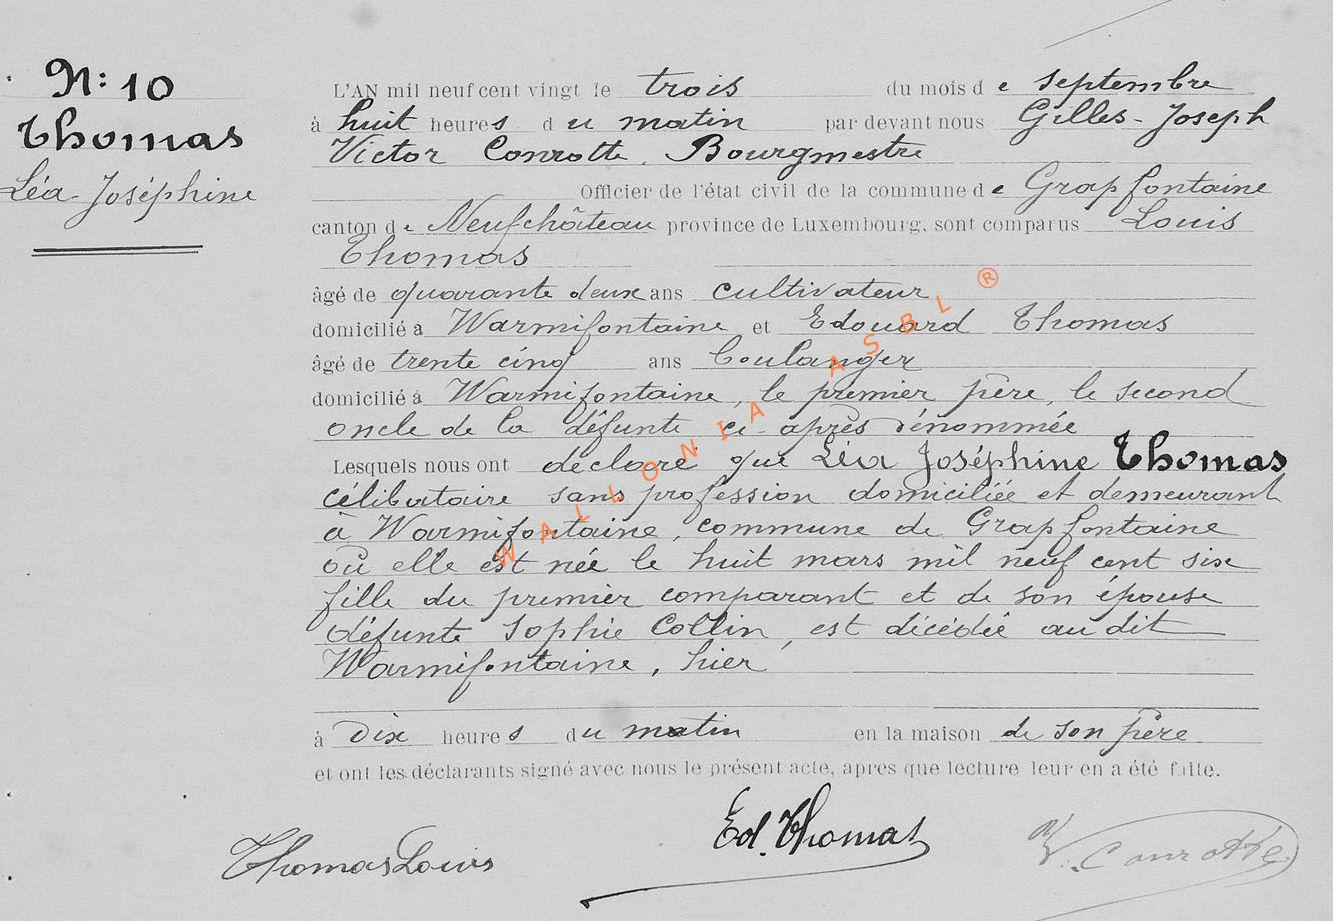 N: 10
Thomas
Léa Joséphine
L'AN mil neuf cent vingt le trois du mois de septembre
à huit heures du matin par devant nous Gilles-Joseph
Victor Conrotte, Bourgmestre
Officier de l'état civil de la commune de Grapfontaine
canton de Neufchâteau province de Luxembourg, sont comparus Louis
Thomas
âgé de quarante deux ans cultivateur
domicilié à Warmifontaine et Edouard Thomas
âgé de trente cinq ans boulanger
domicilié à Warmifontaine, le premier père, le second
oncle de la défunte ci-après dénommée
Lesquels nous ont déclaré que Léa Joséphine Thomas
célibataire sans profession domiciliée et demeurant
à Warmifontaine, commune de Grapfontaine
où elle est née le huit mars mil neuf cent six
fille du premier comparant et de son épouse
défunte Sophie Collin, est décédée au dit
Warmifontaine, hier
à dix heures du matin en la maison de son père
et ont les déclarants signé avec nous le présent acte, après que lecture leur en a été faite.
Thomas Louis
Ed. Thomas
V. Conrotte
WALLONIA ASBL ®